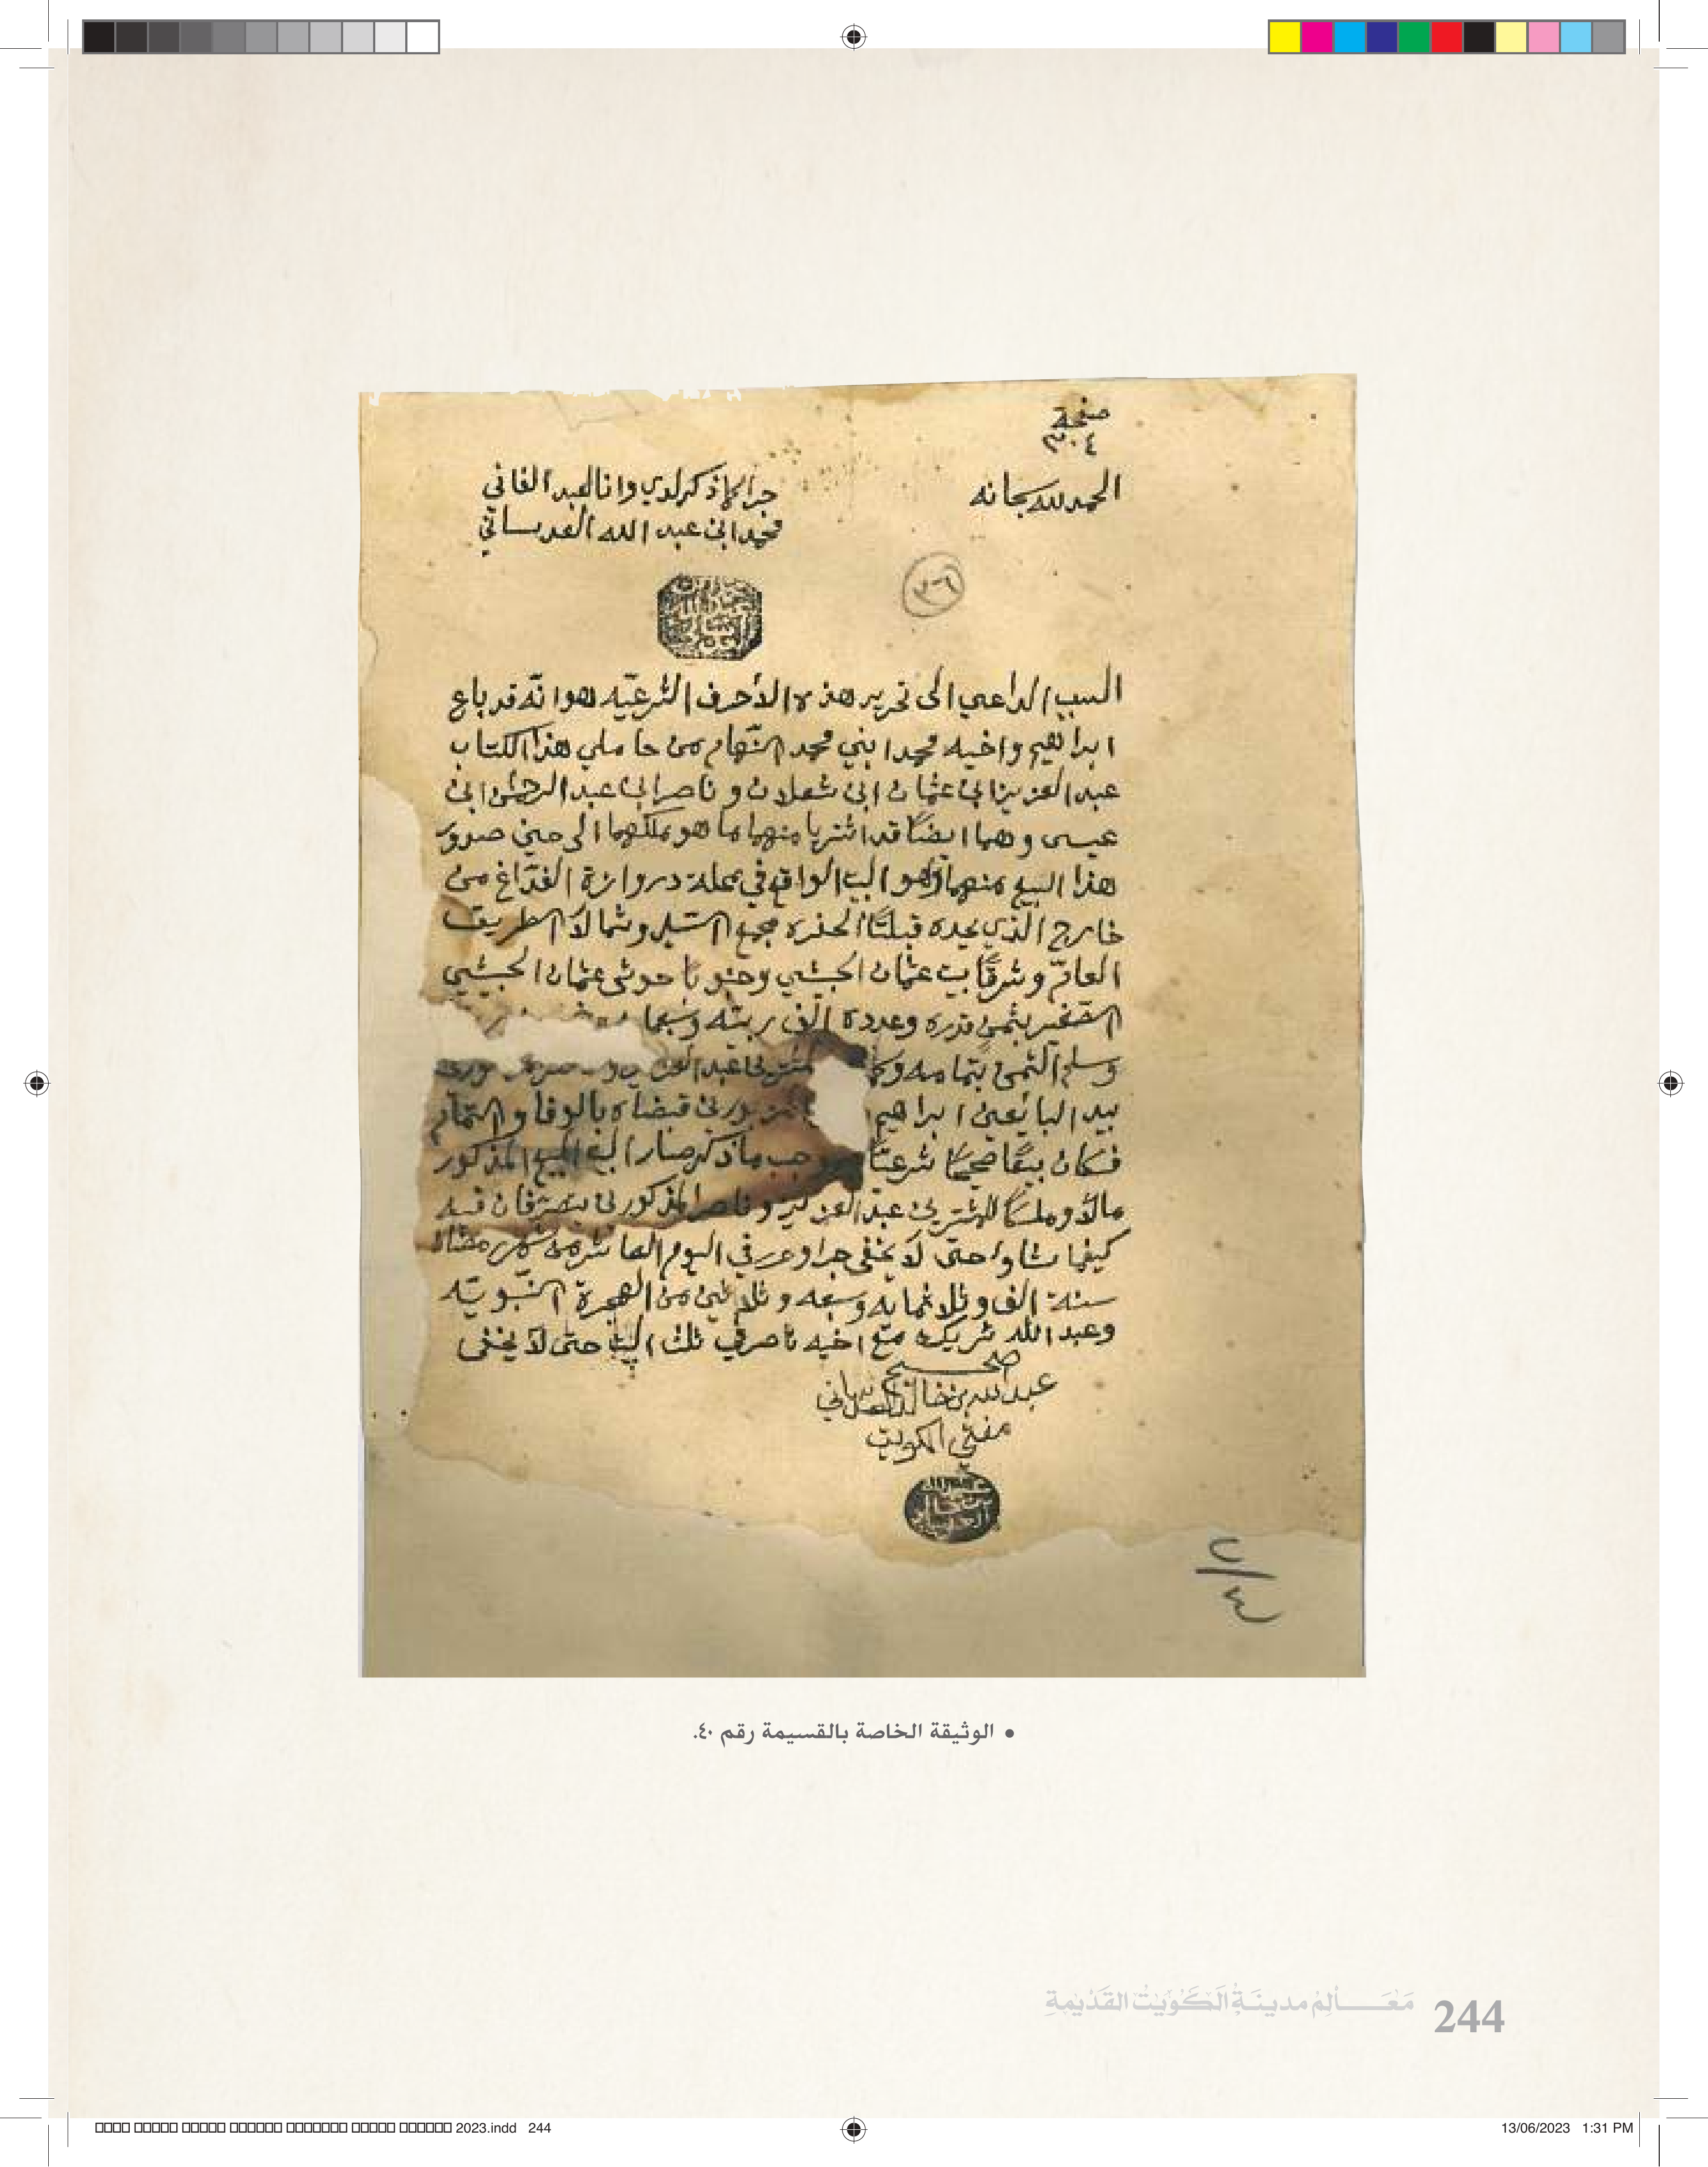 صفحة
٣٠٤
الحمد لله سبحانه
جرا كما ذكر لدي وانا العبد الفاني
محمد ابن عبد الله العدساني
٣٦
السبب الداعي الى تحرير هذه الأحرف الشرعيّه هو انّه قد باع
ابراهيم واخيه محمد ابني محمد النهام من حاملي هذا الكتاب
عبد العزيز ابن عثمان ابن شعلان و ناصر ابن عبد الرحمن ابن
عيسى وهما ايضًا قد اشتريا منهما ما هو ملكهما الى حين صدور
هذا البيع منهما وهو البيت الواقع في محلة دروازة الفدّاغ من
خارج الذي يحده قبلتًا الحفره مجمع السيل وشمالًا الطريق
العامّ وشرقًا بيت عثمان الحبيشي وجنوبا حوش عثمان الحبيشي
الصغير بثمن قدره وعدده الف ربيّه وسبعما
وسلم الثمن بتمامه عبد العزيز
بيد البائعين ابراهيم قبضاه بالوفا والتمام
فكان بيعًا صحيحًا شرعيًا وجب ما ذكر صار البيت المبيع المذكور
مالًا وملكًا للمشترين عبد العزيز و ناصر المذكورين يتصرفان فيه
كيفما شاوا حتى لا يخفى جرا وحرر في اليوم العاشر من شهر رمضان
سنة الف وثلاثمايه وسبعه وثلاثين من الهجرة النّبويّه
وعبد الله شريك مع اخيه ناصر في ثلث البيت حتى لا يخفى
صحيح
عبد الله بن خالد العدساني
مفتي الكويت
• الوثيقة الخاصة بالقسيمة رقم ٤٠.
مَعَـــالِمُ مدينَةِ الكُوَيْت القَدِيمَةِ 244
2023.indd 244
13/06/2023 1:31 PM